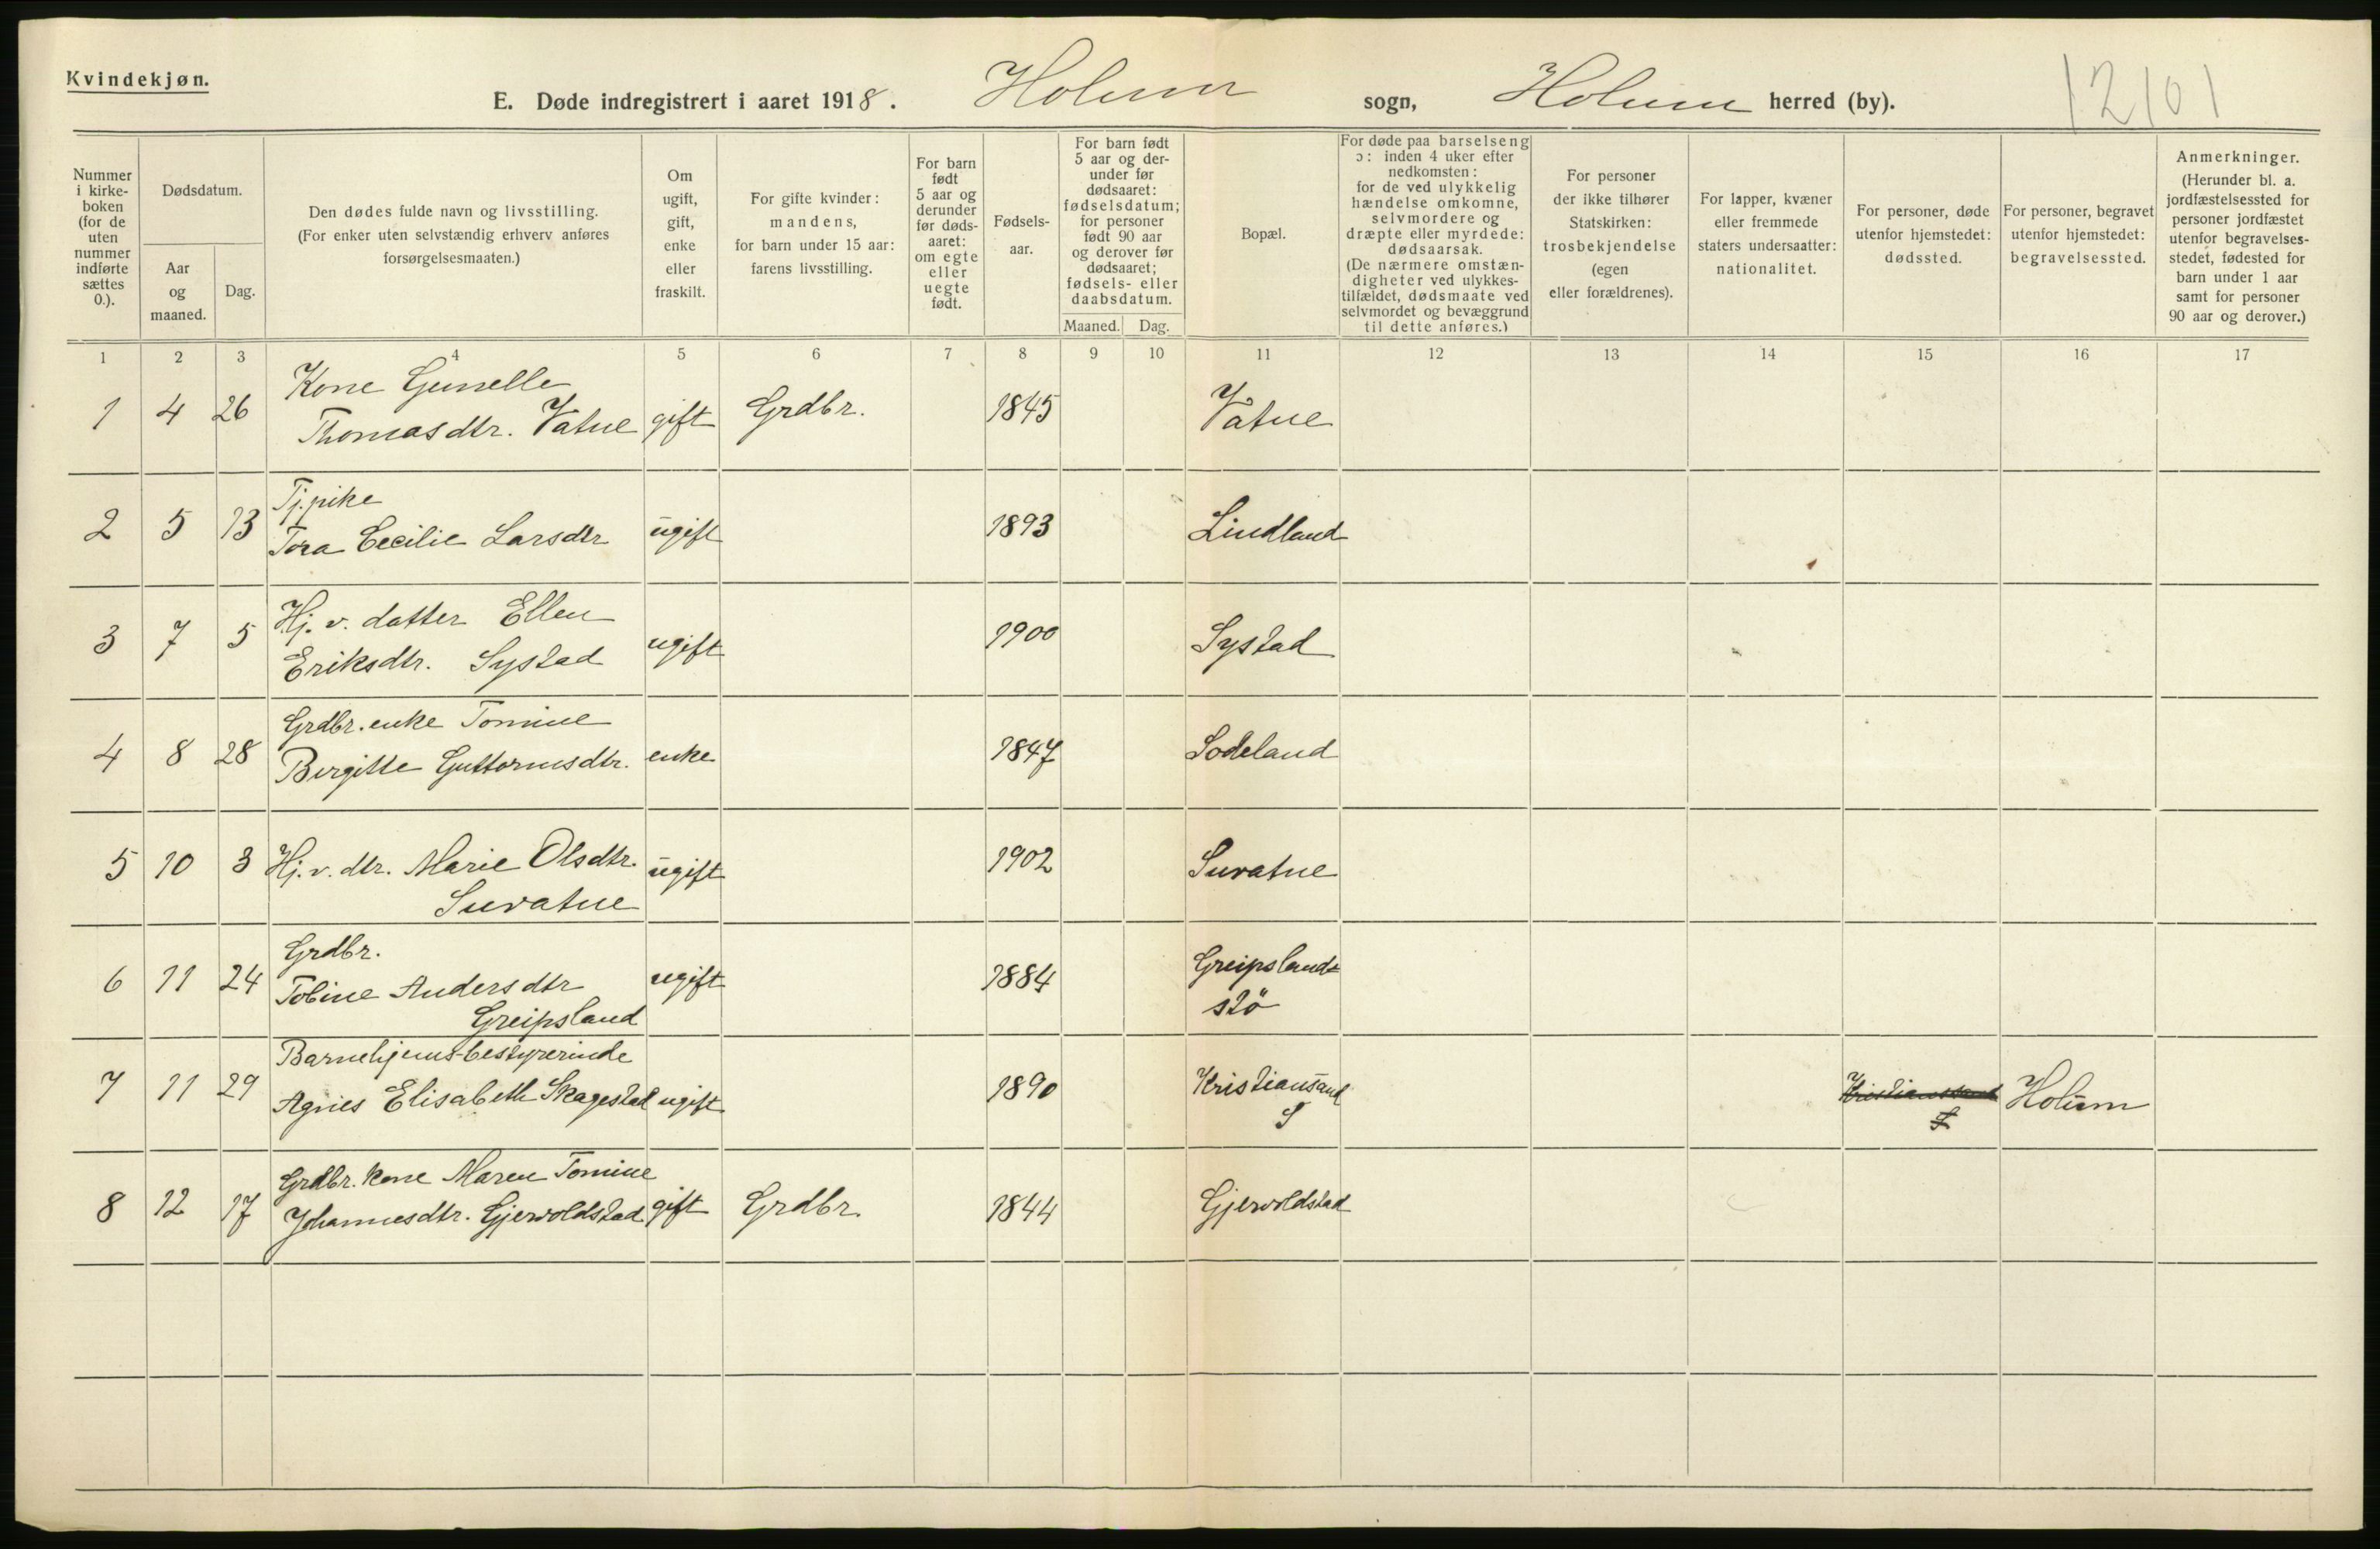 Kvindekjøn.
E. Døde indregistrert i aaret 1918. Holum sogn, Holum herred (by).
12101
Nummer i kirke-boken (for de uten nummer indførte sættes 0.).
Dødsdatum.
Aar og maaned.
Dag.
Den dødes fulde navn og livsstilling.
(For enker uten selvstændig erhverv anføres forsørgelsesmaaten.)
Om ugift, gift, enke eller fraskilt.
For gifte kvinder: mandens, for barn under 15 aar: farens livsstilling.
For barn født 5 aar og derunder før døds-aaret: om egte eller uegte født.
Fødsels-aar.
For barn født 5 aar og der-under før dødsaaret: fødselsdatum; for personer født 90 aar og derover før dødsaaret; fødsels- eller daabsdatum.
Maaned. Dag.
Bopæl.
For døde paa barselseng ɔ: inden 4 uker efter nedkomsten: for de ved ulykkelig hændelse omkomne, selvmordere og dræpte eller myrdede: dødsaarsak. (De nærmere omstæn-digheter ved ulykkes-tilfældet, dødsmaate ved selvmordet og bevæggrund til dette anføres.)
For personer der ikke tilhører Statskirken: trosbekjendelse (egen eller forældrenes).
For lapper, kvæner eller fremmede staters undersaatter: nationalitet.
For personer, døde utenfor hjemstedet: dødssted.
For personer, begravet utenfor hjemstedet: begravelsessted.
Anmerkninger. (Herunder bl. a. jordfæstelsessted for personer jordfæstet utenfor begravelses-stedet, fødested for barn under 1 aar samt for personer 90 aar og derover.)
1 2 3 4 5 6 7 8 9 10 11 12 13 14 15 16 17
Kone Gunelle
1 4 26 Thomasdtr. Vatne gift Grdbr. 1845 Vatne
Tj.pike
2 5 13 Tora Cecilie Larsdtr ugift 1893 Lindland
Hj. v. datter Ellen
3 7 5 Eriksdtr. Systad ugift 1900 Systad
Grdbr. enke Tomine
4 8 28 Birgitte Guttormsdtr. enke 1847 Sodeland
5 10 3 Hj. v. dtr. Marie Olsdtr. ugift 1902 Suvatne
Suvatne
Grdbr.
6 11 24 Tobine Andersdtr ugift 1884 Greipslands
Greipsland stö
Barnehjems-bestyrerinde
7 11 29 Agnes Elisabeth Skagestad ugift 1890 Kristiansand Kristianssand Holum
S S
Grdbr. kone Maren Tomine
8 12 17 Johannesdtr. Gjervoldstad gift Grdbr. 1844 Gjervoldstad